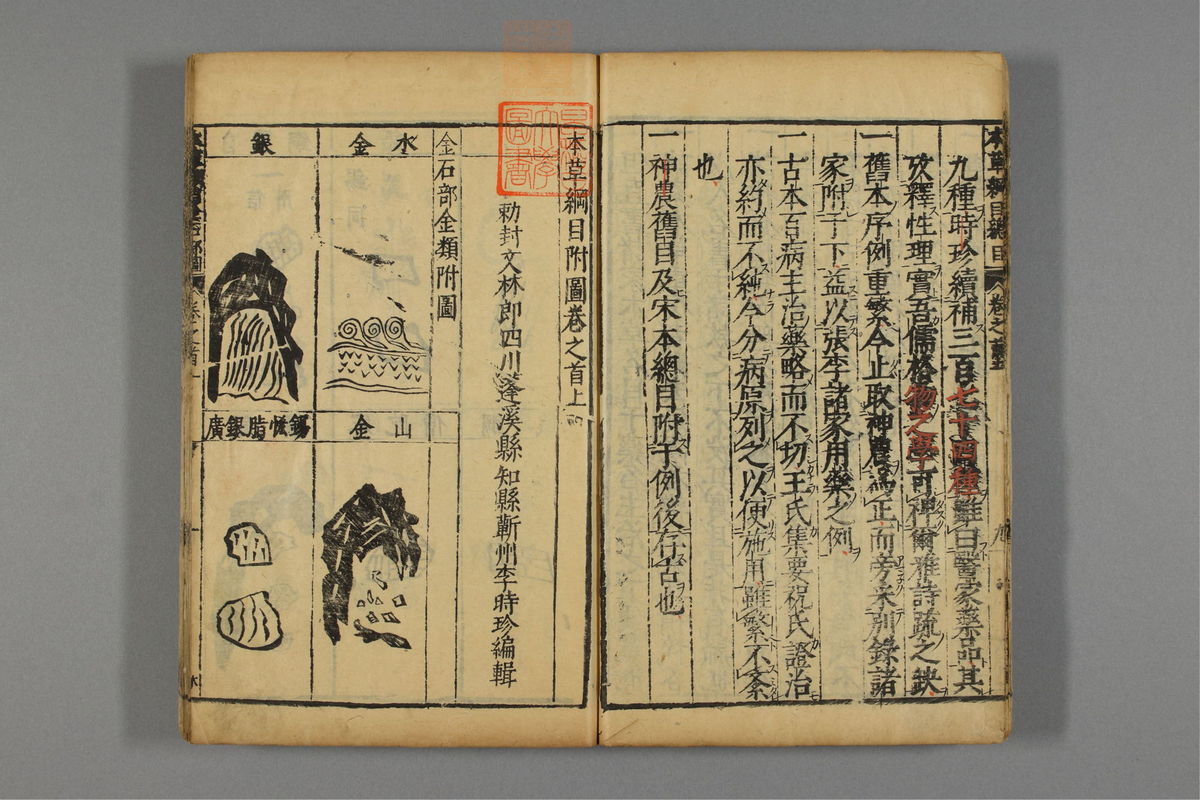 本草綱目總目
卷之首
九種時珍續補三百七十四種雖曰醫家藥品其
攷釋性理實吾儒格物之學可裨爾雅詩疏之缺
一舊本序例重繁今止取神農爲正而旁采別錄諸
家附于下益以張李諸家用藥之例
一古本百病主治藥略而不切王氏集要祝氏證治
亦約而不純今分病原列之以便施用雖繁不紊
也
一神農舊目及宋本總目附于例後存古也
本草綱目附圖卷之首上
勅封文林郎四川蓬溪縣知縣蘄州李時珍編輯
金石部金類附圖
水金
銀
山金
錫恡脂銀廣